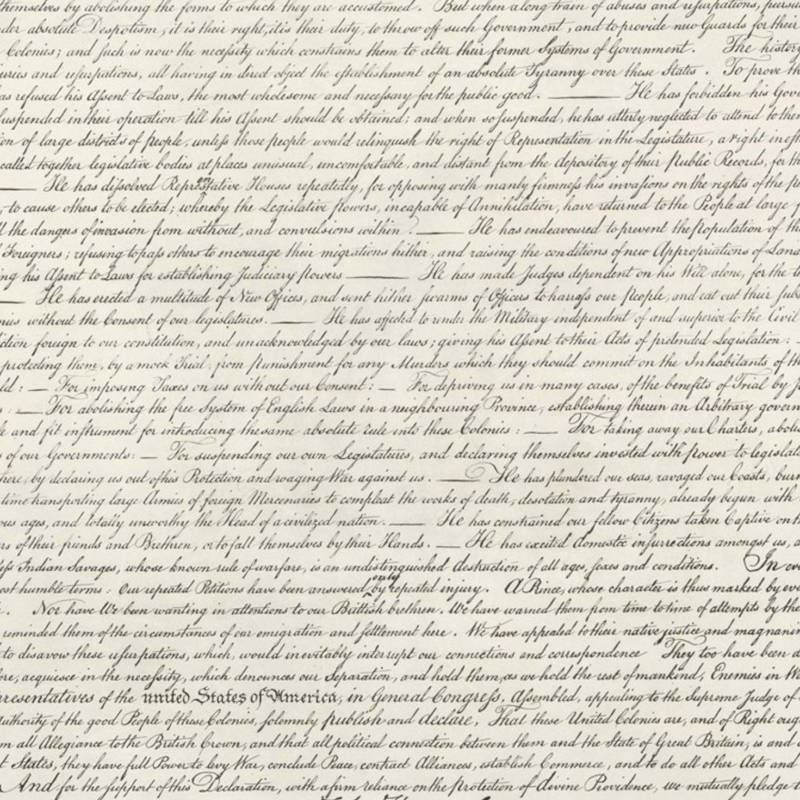 themselves by abolishing the forms to which they are accustomed. But when a long train of abuses and usurpations, pursu
der absolute Despotism, it is their right, it is their duty, to throw off such Government, and to provide new Guards for their
Colonies; and such is now the necessity which constrains them to alter their former Systems of Government. The history
uries and usurpations, all having in direct object the establishment of an absolute Tyranny over these States. To prove th
as refused his Assent to Laws, the most wholesome and necessary for the public good. — He has forbidden his Gov
suspended in their operation till his Assent should be obtained; and when so suspended, he has utterly neglected to attend to them
ion of large districts of people, unless those people would relinquish the right of Representation in the Legislature, a right inest
called together legislative bodies at places unusual, uncomfortable, and distant from the depository of their public Records, for th
— He has dissolved Representative Houses repeatedly, for opposing with manly firmness his invasions on the rights of the pe
, to cause others to be elected; whereby the Legislative powers, incapable of Annihilation, have returned to the People at large f
l the dangers of invasion from without, and convulsions within. — He has endeavoured to prevent the population of th
Foreigners; refusing to pass others to encourage their migrations hither, and raising the conditions of new Appropriations of Land
ing his Assent to Laws for establishing Judiciary powers — He has made Judges dependent on his Will alone, for the t
— He has erected a multitude of New Offices, and sent hither swarms of Officers to harrass our people, and eat out their sub
mies without the Consent of our legislatures. — He has affected to render the Military independent of and superior to the Civil
ction foreign to our constitution, and unacknowledged by our laws; giving his Assent to their Acts of pretended Legislation: —
protecting them, by a mock Trial, from punishment for any Murders which they should commit on the Inhabitants of th
ld: — For imposing Taxes on us without our Consent: — For depriving us in many cases, of the benefits of Trial by J
s: — For abolishing the free System of English Laws in a neighbouring Province, establishing therein an Arbitrary govern
le and fit instrument for introducing the same absolute rule into these Colonies: — For taking away our Charters, abolis
s of our Governments: — For suspending our own Legislatures, and declaring themselves invested with power to legislat
here, by declaring us out of his Protection and waging War against us. — He has plundered our seas, ravaged our Coasts, burn
time transporting large Armies of foreign Mercenaries to compleat the works of death, desolation and tyranny, already begun with
ous ages, and totally unworthy the Head of a civilized nation. — He has constrained our fellow Citizens taken Captive on th
rs of their friends and Brethren, or to fall themselves by their Hands. — He has excited domestic insurrections amongst us, a
less Indian Savages, whose known rule of warfare, is an undistinguished destruction of all ages, sexes and conditions. In eve
ost humble terms: Our repeated Petitions have been answered only by repeated injury. A Prince, whose character is thus marked by eve
. Nor have We been wanting in attentions to our Brittish brethren. We have warned them from time to time of attempts by the
reminded them of the circumstances of our emigration and settlement here. We have appealed to their native justice and magnanim
to disavow these usurpations, which, would inevitably interrupt our connections and correspondence They too have been d
ore, acquiesce in the necessity, which denounces our Separation, and hold them, as we hold the rest of mankind, Enemies in Wa
presentatives of the united States of America, in General Congress, Assembled, appealing to the Supreme Judge of
Authority of the good People of these Colonies, solemnly publish and declare, That these United Colonies are, and of Right oug
om all Allegiance to the British Crown, and that all political connection between them and the State of Great Britain, is and o
t States, they have full Power to levy War, conclude Peace, contract Alliances, establish Commerce, and to do all other Acts and
And for the support of this Declaration, with a firm reliance on the protection of divine Providence, we mutually pledge t